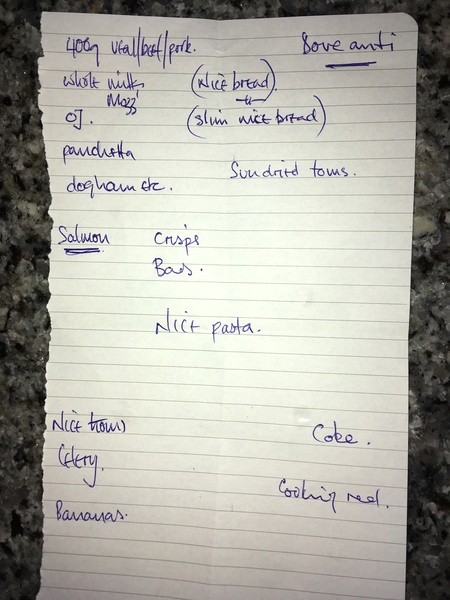 400g veal/beef/pork. Bove anti
whole milk (Nice bread)
Mozz
OJ. (slim nice bread)
pancetta
Sundried toms.
dogham etc.
Salmon Crisps
Bars.
Nice pasta.
Nice toms
Coke.
Celery.
Cooking red.
Bananas.